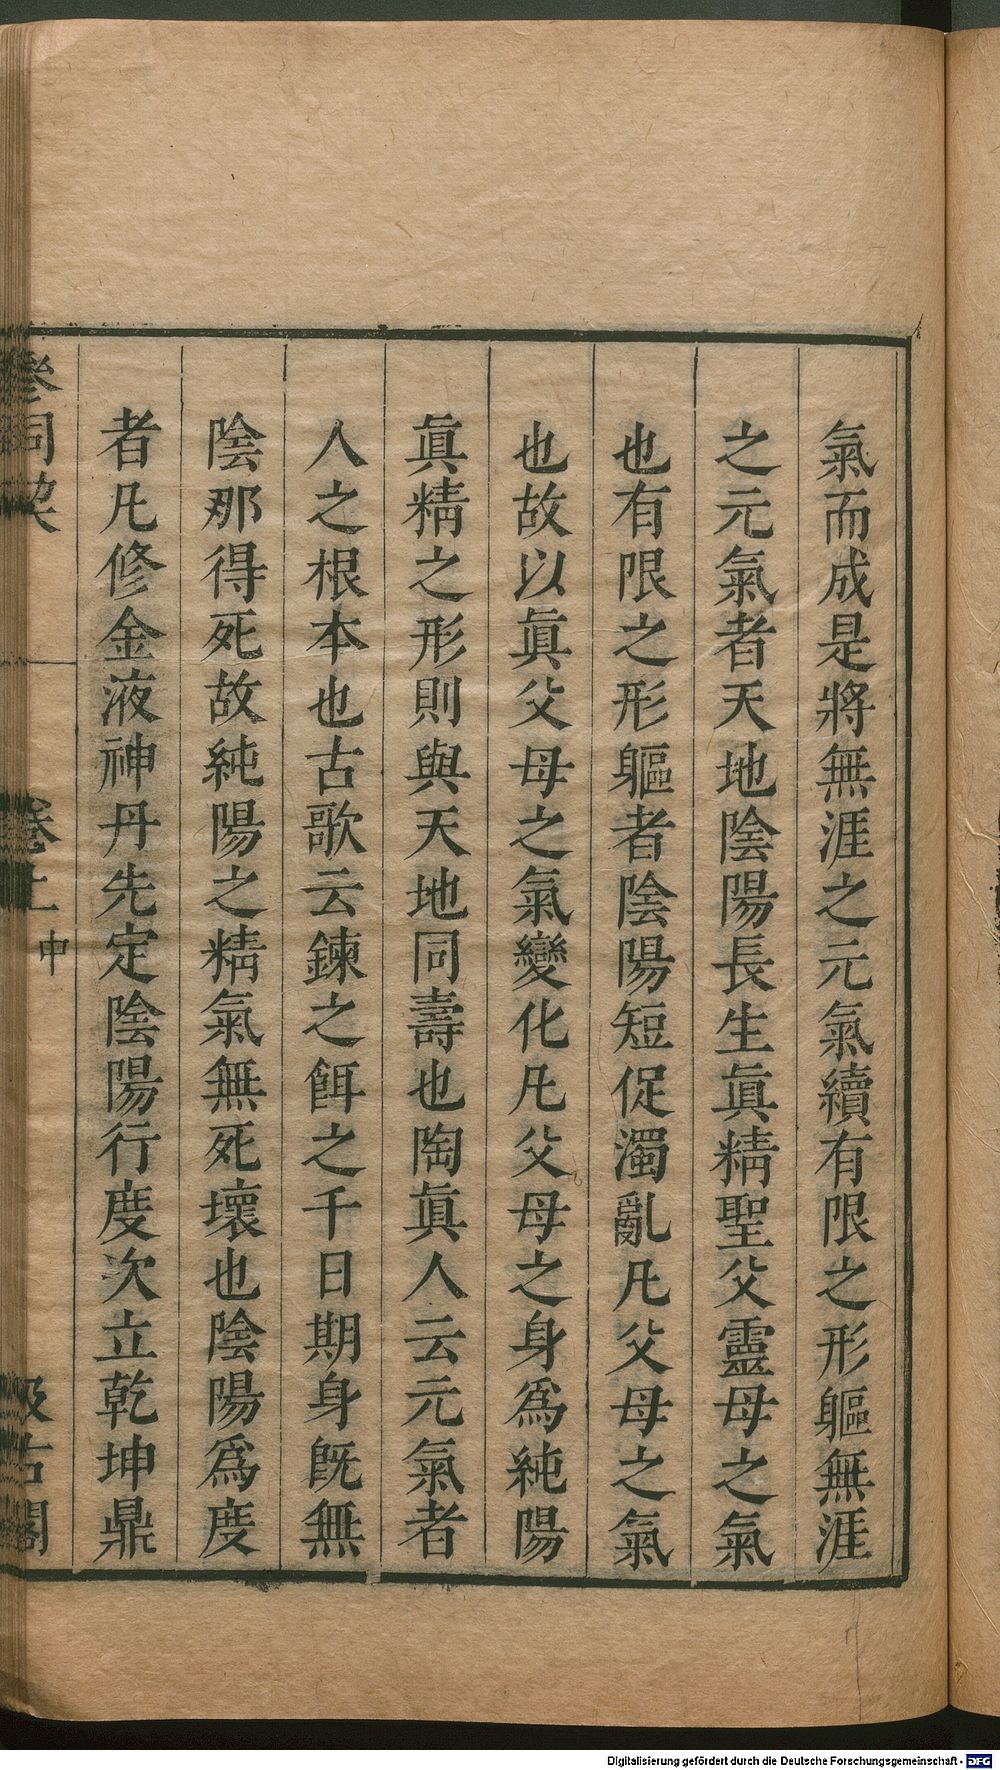 氣而成是將無涯之元氣續有限之形軀無涯
之元氣者天地陰陽長生眞精聖父靈母之氣
也有限之形軀者陰陽短促濁亂凡父母之氣
也故以眞父母之氣變化凡父母之身爲純陽
眞精之形則與天地同壽也陶眞人云元氣者
人之根本也古歌云鍊之餌之千日期身旣無
陰那得死故純陽之精氣無死壞也陰陽爲度
者凡修金液神丹先定陰陽行度次立乾坤鼎
參同契 卷上 中 汲古閣
Digitalisierung gefördert durch die Deutsche Forschungsgemeinschaft - DFG